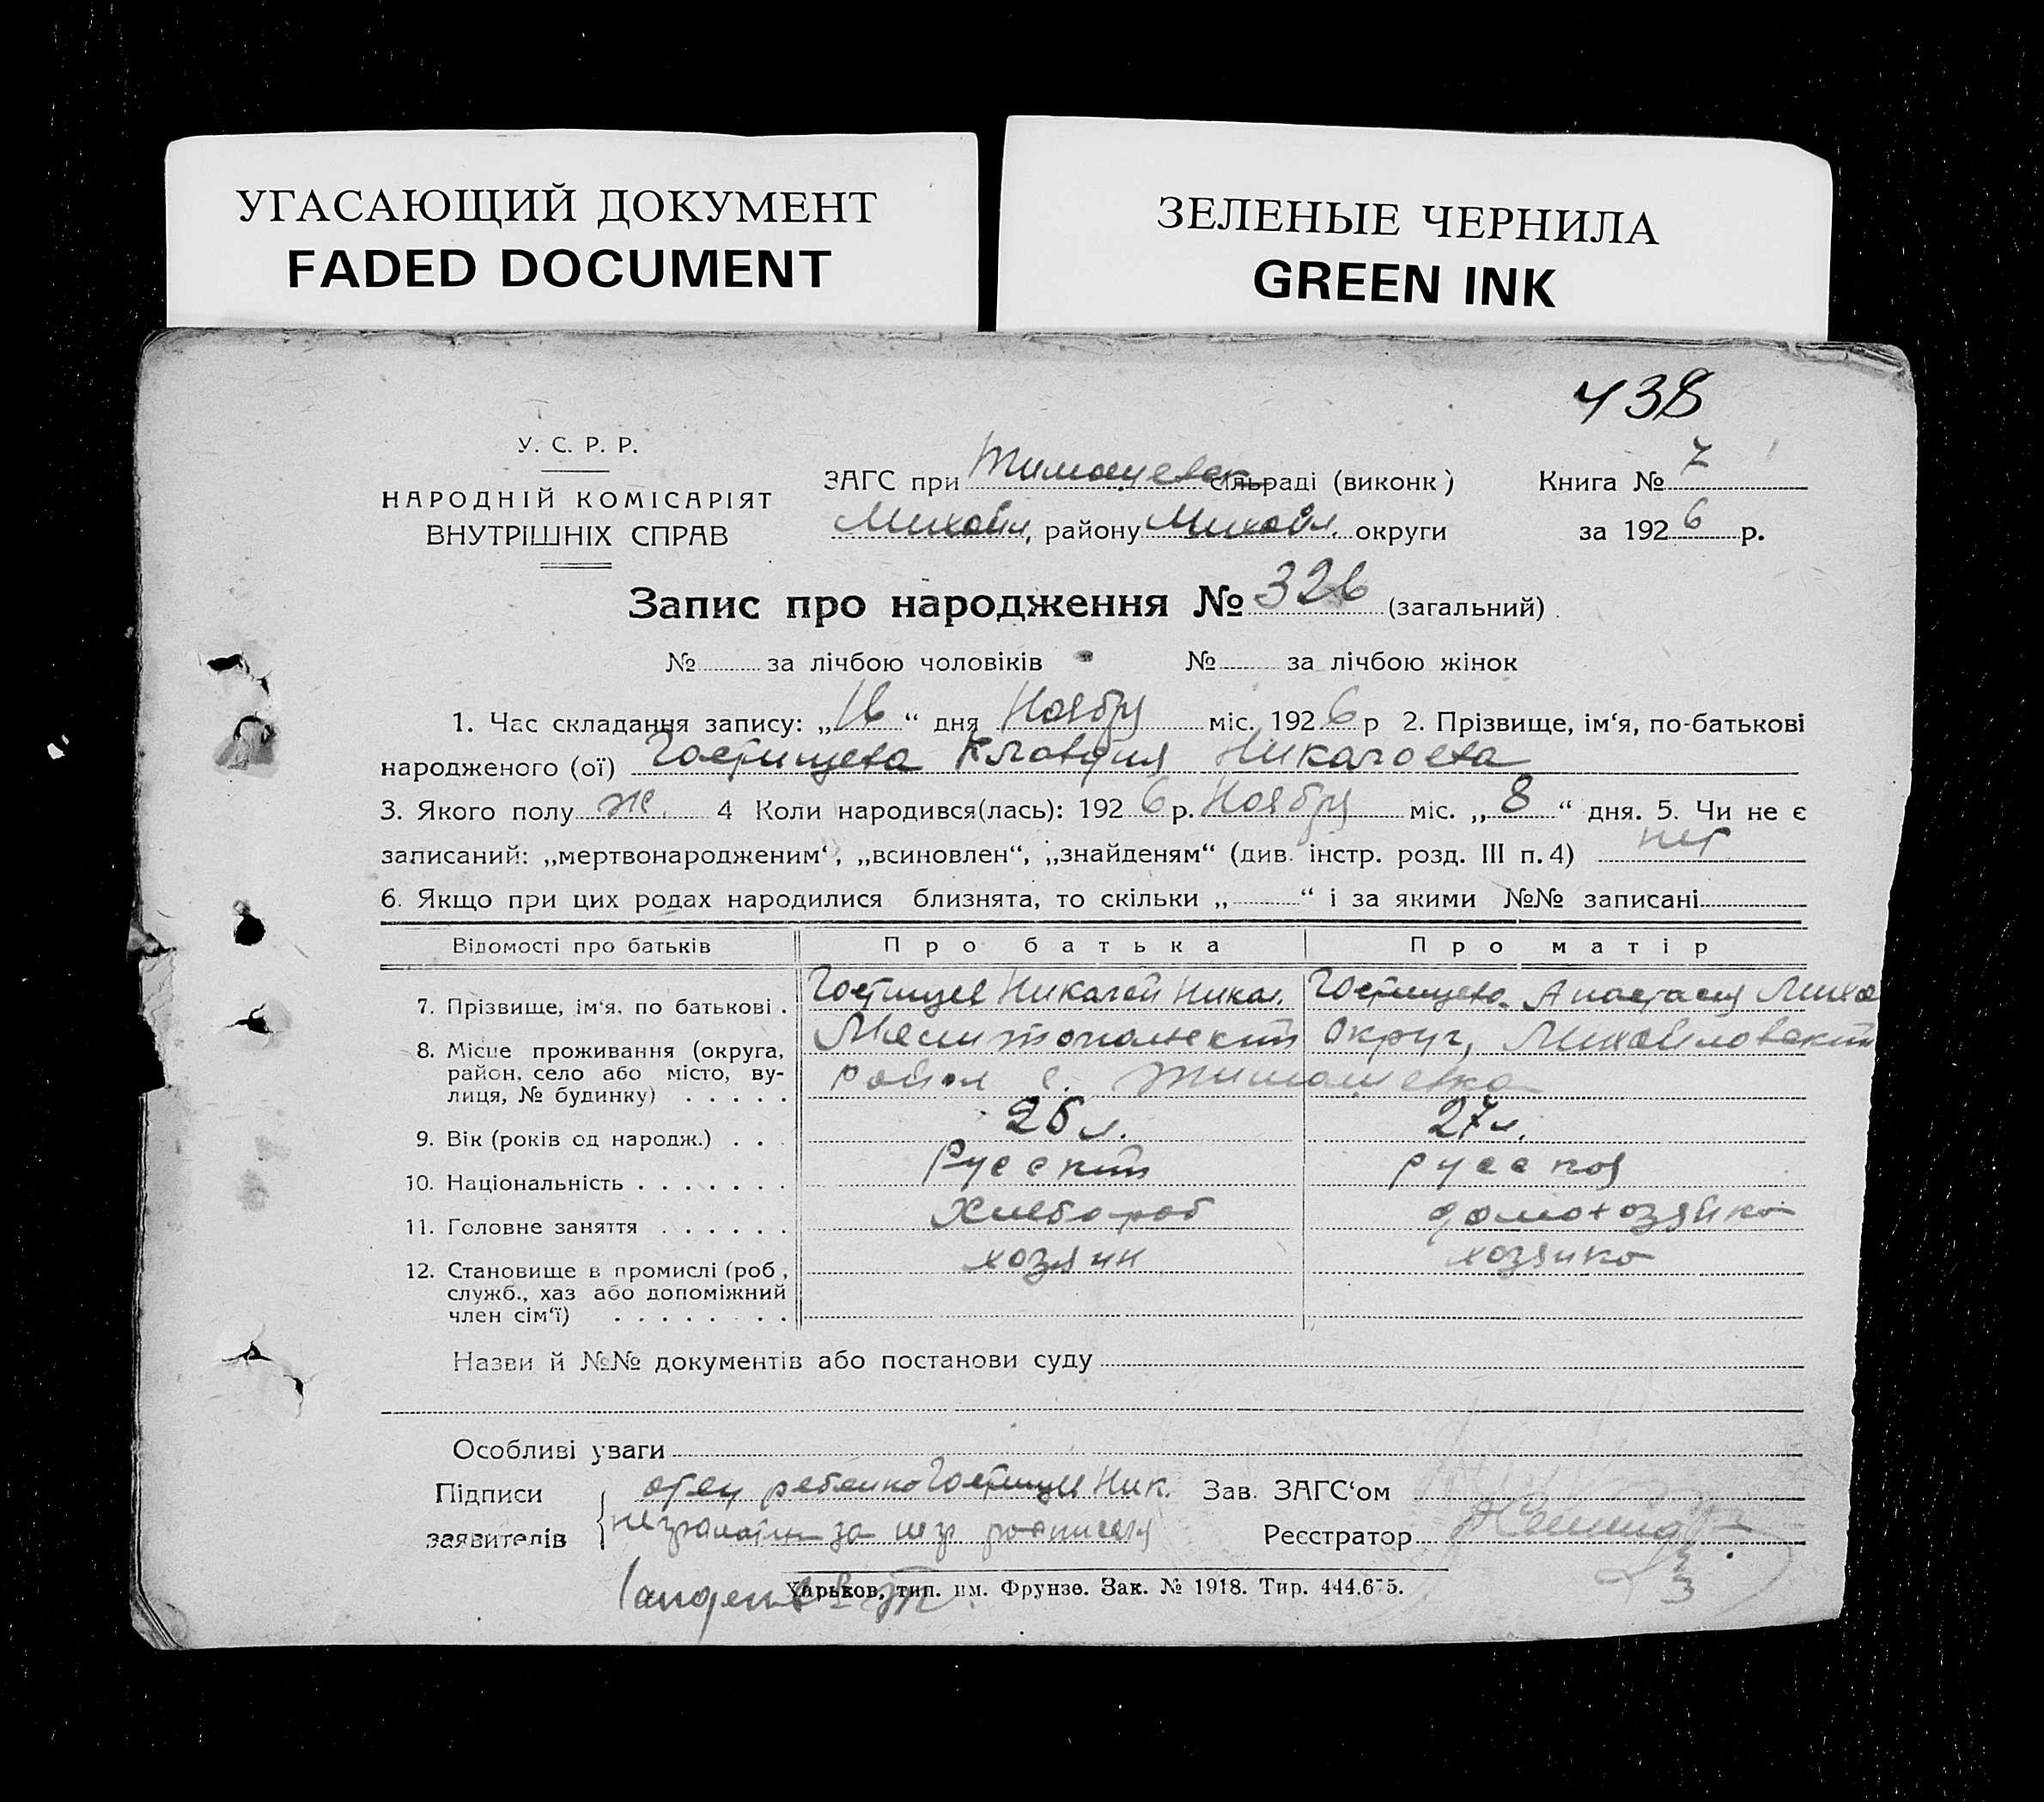 УГАСАЮЩИЙ ДОКУМЕНТ
FADED DOCUMENT
ЗЕЛЕНЫЕ ЧЕРНИЛА
GREEN INK
438
У. С. Р. Р.
НАРОДНІЙ КОМІСАРІЯТ
ВНУТРІШНІХ СПРАВ
ЗАГС при Тимошевск сільраді (виконк)
Михайл, району Михайл. округи
Книга № 7
за 1926 р.
Запис про народження № 326 (загальний)
№ за лічбою чоловіків № за лічбою жінок
1. Час складання запису: „16“ дня Ноября міс. 1926 р 2. Прізвище, ім‘я, по-батькові
народженого (ої) Гостищева Клавдия Николаева
3. Якого полу же. 4 Коли народився(лась): 1926 р. Ноября міс. „8“ дня. 5. Чи не є
записаний: „мертвонародженим“, „всиновлен“, „знайденям“ (див. інстр. розд. III п. 4) нет
6. Якщо при цих родах народилися близнята, то скільки „ “ і за якими №№ записані
Відомості про батьків Про батька Про матір
7. Прізвище, ім‘я, по батькові . Гостищев Николай Никол. Гостищева Анастасия Михо
8. Місце проживання (округа, район, село або місто, вулиця, № будинку) . . . . . Мелитопольский Округ, Михайловский
район с. Тимошевка
9. Вік (років од народж.) . . . 26 л. 27 л.
10. Національність . . . . . . . Русский русская
11. Головне заняття . . . . . . Хлебороб домохозяйка
12. Становище в промислі (роб, служб., хаз або допоміжний член сім‘ї) . . . . . . . хозяин хозяйка
Назви й №№ документів або постанови суду
Особливі уваги
Підписи заявителів
отец ребенка Гостищев Ник.
неграмотн за нег росписался
Зав. ЗАГС‘ом
Реєстратор
Харьков, тип. им. Фрунзе. Зак. № 1918. Тир. 444.675.